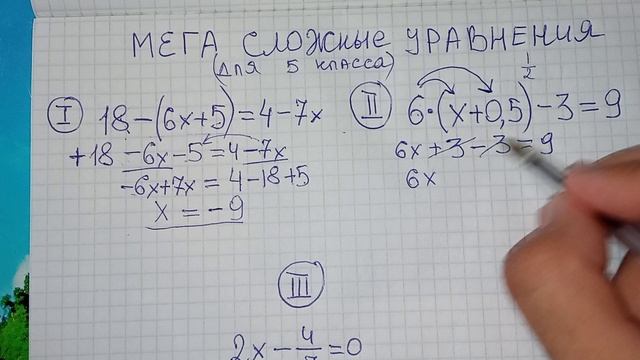 МЕГА СЛОЖНЫЕ УРАВНЕНИЯ
(ДЛЯ 5 КЛАССА)
I
18-(6x+5)=4-7x
+18-6x-5=4-7x
-6x+7x=4-18+5
x=-9
II
1/2
6·(x+0,5)-3=9
6x+3-3=9
6x
III
2x-4/7=0